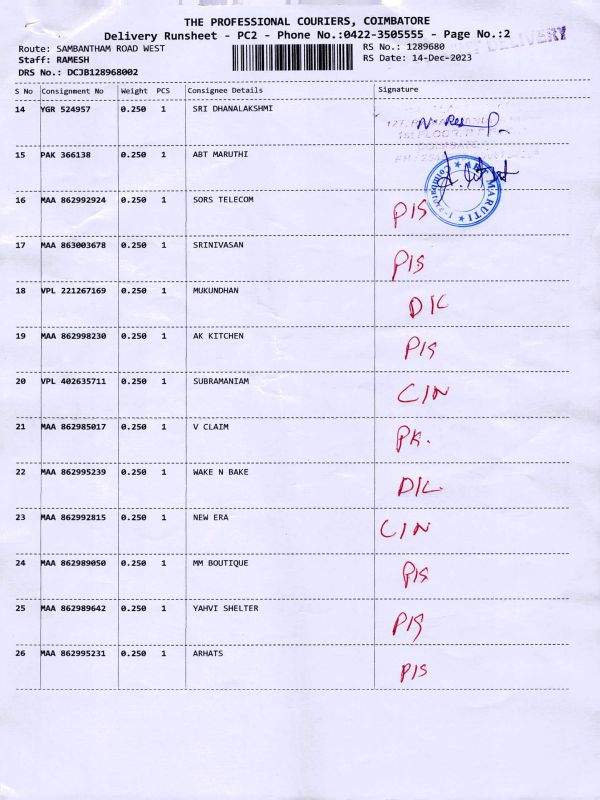 THE PROFESSIONAL COURIERS, COIMBATORE
Delivery Runsheet - PC2 - Phone No.:0422-3505555 - Page No.:2
DELIVERY
Route: SAMBANTHAM ROAD WEST RS No.: 1289680
Staff: RAMESH RS Date: 14-Dec-2023
DRS No.: DCJB128968002
S No Consignment No Weight PCS Consignee Details Signature
14 YGR 524957 0.250 1 SRI DHANALAKSHMI
15 PAK 366138 0.250 1 ABT MARUTHI
MARUTI
Coimbatore
16 MAA 862992924 0.250 1 SORS TELECOM P/S
17 MAA 863003678 0.250 1 SRINIVASAN P/S
18 VPL 221267169 0.250 1 MUKUNDHAN D/L
19 MAA 862998230 0.250 1 AK KITCHEN P/S
20 VPL 402635711 0.250 1 SUBRAMANIAM C/N
21 MAA 862985017 0.250 1 V CLAIM PK.
22 MAA 862995239 0.250 1 WAKE N BAKE D/L
23 MAA 862992815 0.250 1 NEW ERA C/N
24 MAA 862989050 0.250 1 MM BOUTIQUE P/S
25 MAA 862989642 0.250 1 YAHVI SHELTER P/S
26 MAA 862995231 0.250 1 ARHATS P/S